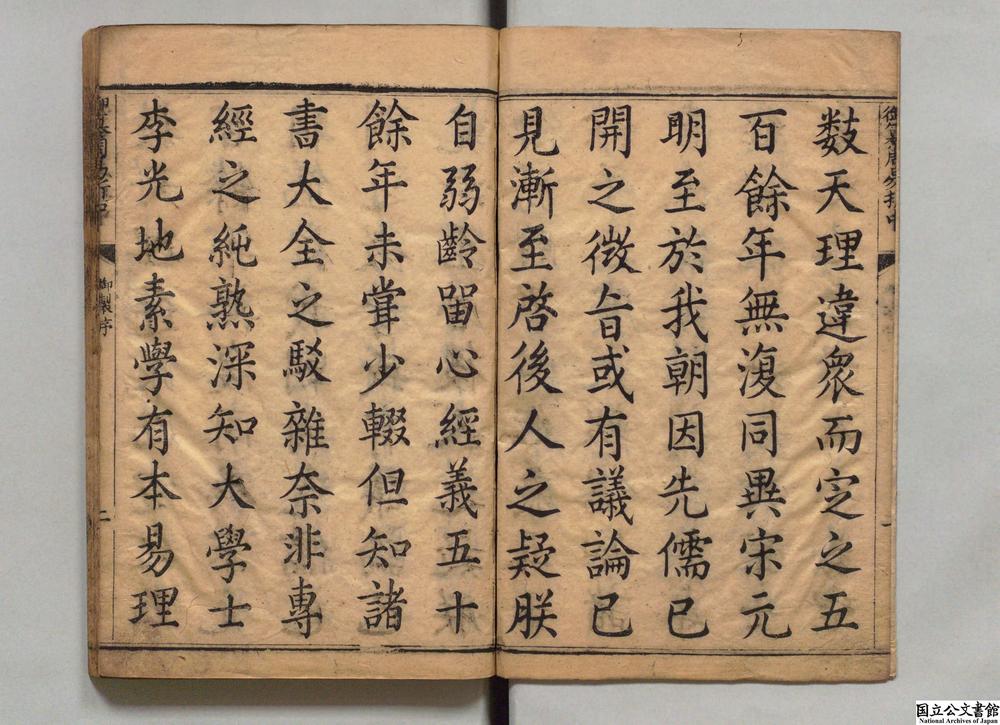 數天理違衆而定之五
百餘年無復同異宋元
明至於我朝因先儒已
開之微旨或有議論已
見漸至啓後人之疑朕
自弱齡留心經義五十
餘年未嘗少輟但知諸
書大全之駁雜奈非專
經之純熟深知大學士
李光地素學有本易理
御製序
二
国立公文書館
National Archives of Japan